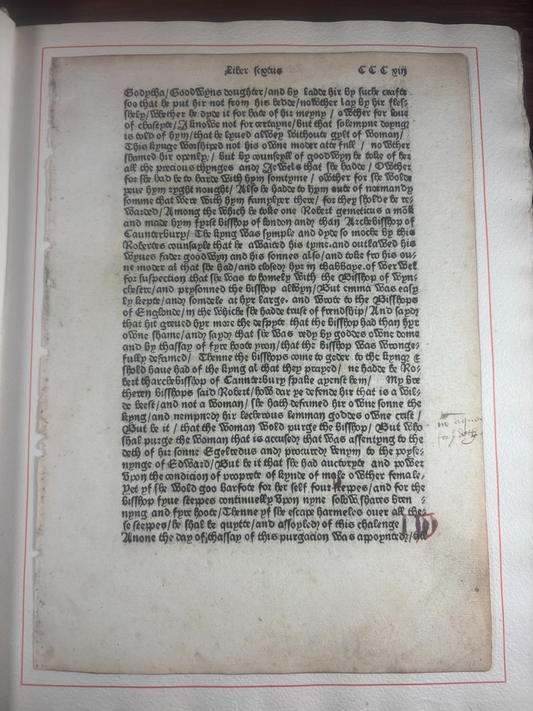 Liber sextus CCC xiij
Godytha / Goodwyns doughter / and by ladde hir by suche crafte
soo that he put hir not from his bedde / nowther lay by hir fles-
shely / whether he dyde it for hate of hir meyny / owther for loue
of chastyte / I knowe not for certayne / but that solempne doyng
is told of hym / that he lyued alwey withoute gylt of woman /
This kynge worshiped not his owne moder atte fulle / nowther
shamed her openly / but by counseyll of goodwyn he toke of her
all the precious thynges and Jewels that she hadde / Owther
for she had be to harde with hym somtyme / owther for she wolde
yeue hym ryght nought / Also he hadde to hym oute of normandy
somme that were with hym famylyer there / for they sholde be re-
warded / Among the which he toke one Robert gemeticus a monk
and made hym fyrst bisshop of london and than Archebisshop of
Caunterbury / The kyng was symple and dyde so moche by this
Robertes counsayle that he awaited his tyme. and outlawed his
wyues fader goodwyn and his sonnes also / and toke fro his ow-
ne moder al that she had / and closed hyr in thabbaye of Werwel
for suspection that she was to homely with the Bisshop of wyn-
chestre / and prysonned the bisshop alwyn / But emma was easy
ly kepte / and somdele at hyr large. and wrote to the Bisshops
of Englonde / in the whiche she hadde trust of frendship / And sayd
that hit greued hyr more the despyte that the bisshop had than hyr
owne shame / and sayd that she was redy by goddes owne dome
and by thassay of fyre hoote yron / that the bisshop was wronge-
fully defamed / Thenne the bisshops come to geder to the kyng &
shold haue had of the kyng al that they prayed / ne hadde be Ro-
bert tharchebisshop of Caunterbury spake ayenst hem / My bre
theren bisshops said Robert / how dar ye defende hir that is a wil-
de beest / and not a woman / she hath defamed hir owne sonne the
kyng / and nempned hir lecherous lemman goddes owne crist /
But be it / that the woman wold purge the bisshop / But who
shal purge the woman that is accused that was assentyng to the
deth of his sonne Egelredus and procured venym to the poyse-
nynge of Edward / But be it that she had auctoryte and power
vpon the condicion of proprete of kynde of male owther female /
Yet yf she wold goo barfote for her self four steppes / and for the
bisshop fyue steppes continuelly vpon nyne solow shares bren -
nyng and fyre hoote / Thenne yf she escape harmeles ouer all thes-
se steppes / he shal be quytte / and assoyled of this chalenge
Anone the day of thassay of this purgacion was appoynted /